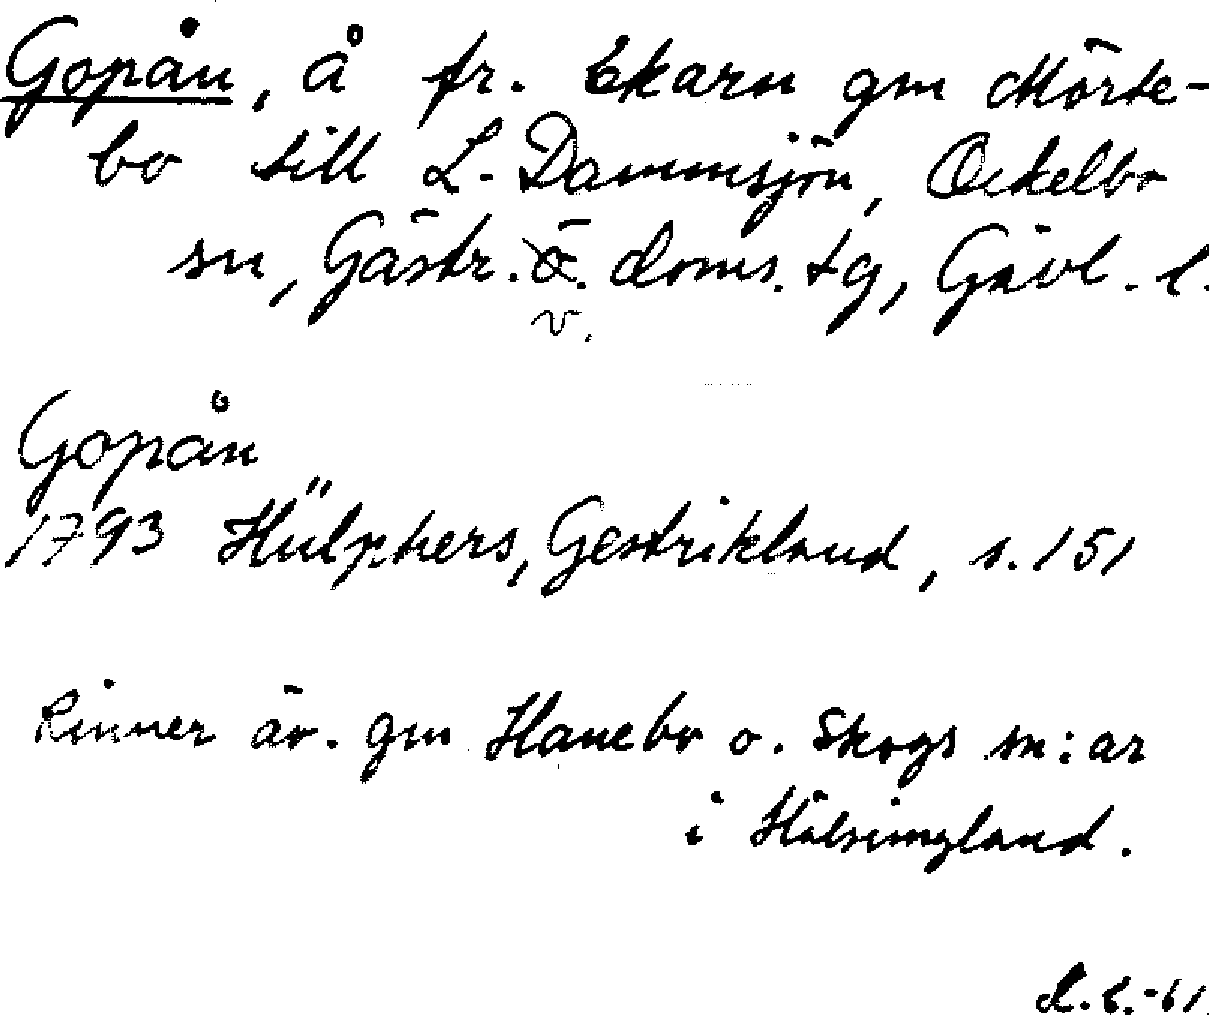 Gopån, å fr. Ekaren gm Mörte-
bo till L. Dammsjön, Ockelbo
sn, Gästr. ö. doms. tg, Gävl. l.
v.
Gopån
1793 Hülphers, Gestrikland, s. 151
Rinner äv. gm Hanebo o. Skogs sn:ar
i Hälsingland.